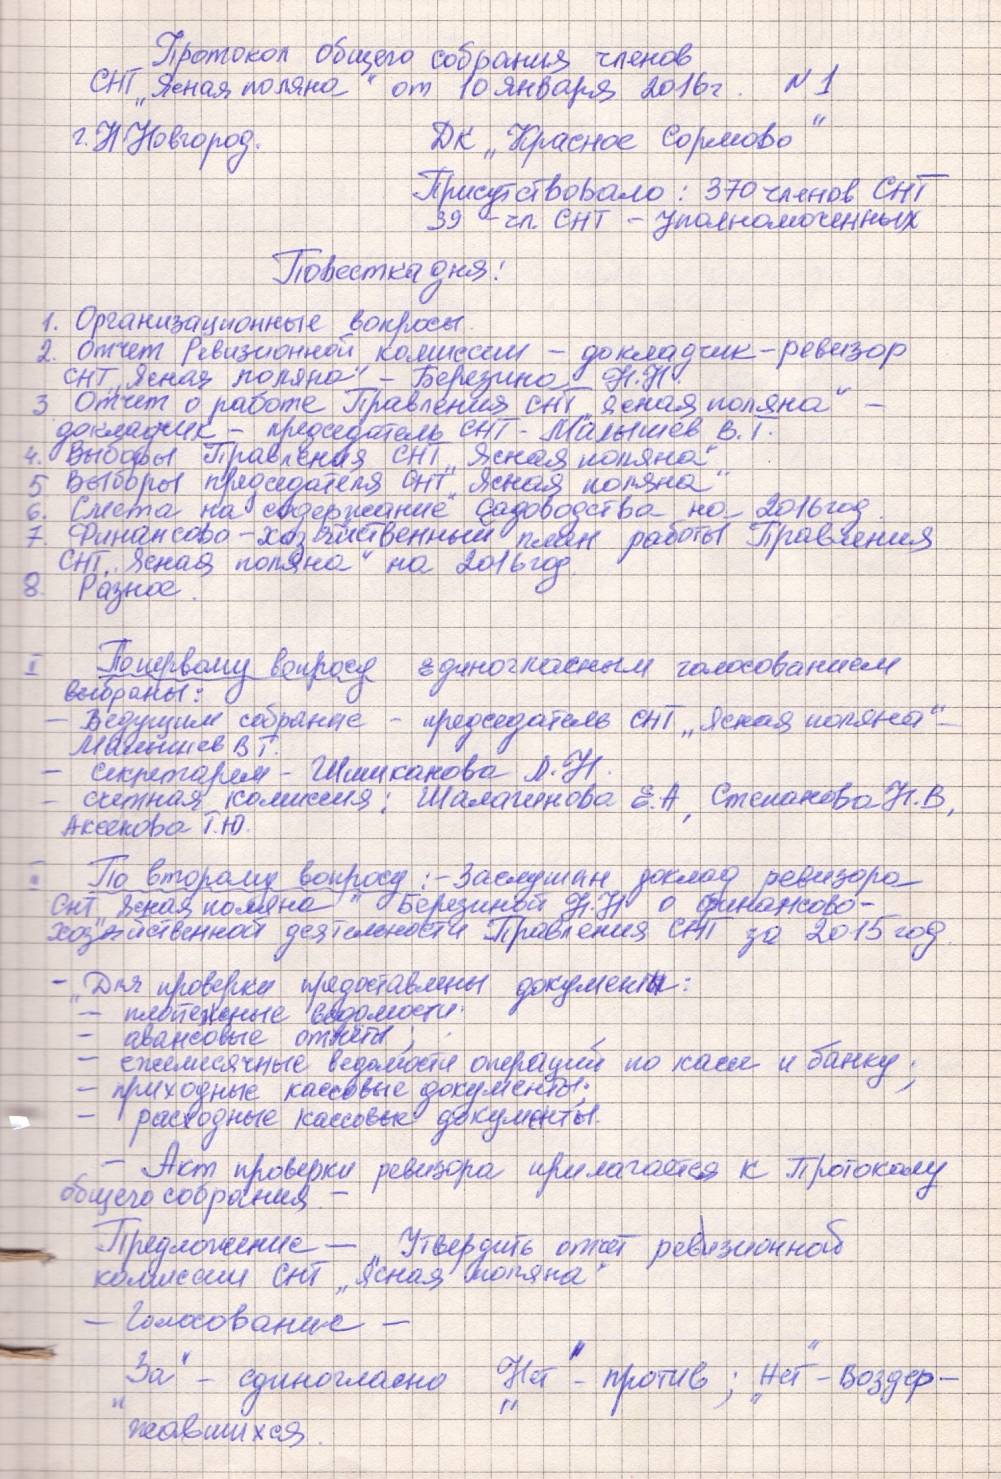 Протокол общего собрания членов
СНТ „Ясная поляна" от 10 января 2016г. № 1
г. Н Новгород. ДК „Красное Сормово"
Присутствовало: 370 членов СНТ
39 - чл. СНТ - уполномоченных
Повестка дня:
1. Организационные вопросы.
2. Отчет Ревизионной комиссии - докладчик - ревизор
СНТ „Ясная поляна" - Березина Н.Н.
3 Отчет о работе Правления СНТ „Ясная поляна" -
докладчик - председатель СНТ - Малышев В.Г.
4. Выборы Правления СНТ „Ясная поляна"
5 Выборы председателя СНТ „Ясная поляна"
6. Смета на содержание садоводства на 2016 год.
7. Финансово-хозяйственный план работы Правления
СНТ „Ясная поляна" на 2016 год.
8. Разное.
I По первому вопросу единогласным голосованием
выбраны:
- Ведущим собрание - председатель СНТ „Ясная поляна" -
Малышев В Г.
- секретарем - Л.Н.
- счетная комиссия: Шалагинова Е.А, Степанова Н.В,
Аксенова Т.Ю.
II По второму вопросу: - Заслушан доклад ревизора
СНТ „Ясная поляна" Березиной Н.Н о финансово-
хозяйственной деятельности Правления СНТ за 2015 год.
- „Для проверки предоставлены документы:
- платежные ведомости;
- авансовые отчеты;
- ежемесячные ведомости операций по кассе и банку;
- приходные кассовые документы;
- расходные кассовые документы.
- Акт проверки ревизора прилагается к Протоколу
общего собрания. -
Предложение - „Утвердить отчет ревизионной
комиссии СНТ „Ясная поляна"
- Голосование -
„За" - единогласно „Нет" - против; „Нет" - Воздер-
жавшихся.